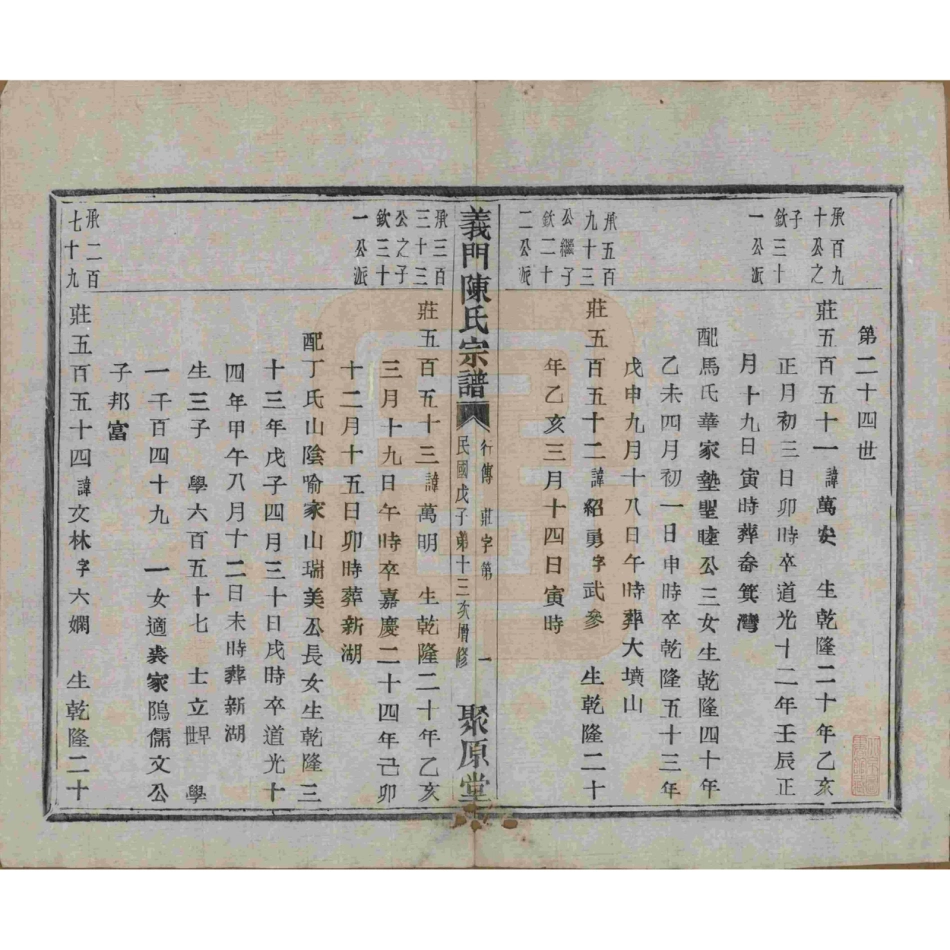 第二十四世
承百九
十公之
子
欽三十
一公派
莊五百五十一諱萬安 生乾隆二十年乙亥
正月初三日卯時卒道光十二年壬辰正
月十九日寅時葬畚箕灣
配馬氏華家墊聖睦公三女生乾隆四十年
乙未四月初一日申時卒乾隆五十三年
戊申九月十八日午時葬大墳山
承五百
九十三
公繼子
欽二十
二公派
莊五百五十二諱紹勇字武參 生乾隆二十
年乙亥三月十四日寅時
義門陳氏宗譜
行傳 莊字第 一
民國戊子弟十三次屑修
聚原堂
承三百
三十三
公之子
欽三十
一公派
莊五百五十三諱萬明 生乾隆二十年乙亥
三月十九日午時卒嘉慶二十四年己卯
十二月十五日卯時葬新湖
配丁氏山陰喻家山瑞美公長女生乾隆三
十三年戊子四月三十日戌時卒道光十
四年甲午八月十二日未時葬新湖
生三子 學六百五十七 士立早世 學
一千百四十九 一女適裘家隖儒文公
子邦富
承二百
七十九
莊五百五十四諱文林字六嫻 生乾隆二十